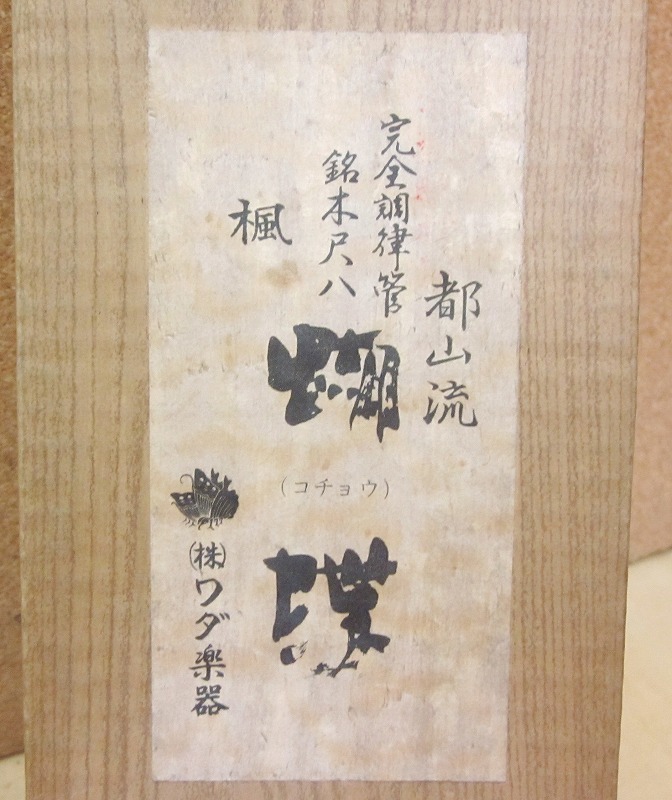 都山流
完全調律管
銘木尺八
楓
蝴蝶
(コチョウ)
(株)ワダ楽器